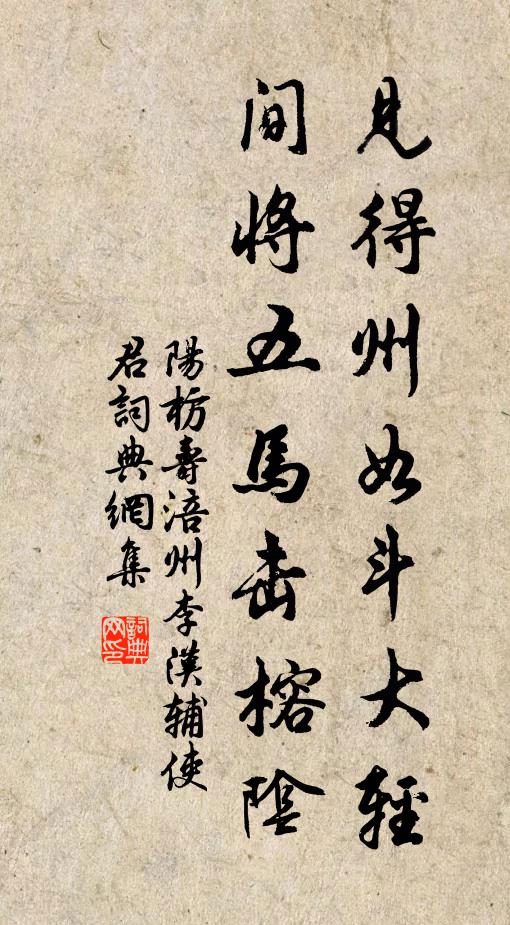 見得州如斗大輕
間將五馬击榕陰
陽枋壽涪州李漢輔使
君詞典網集
詞典
网印